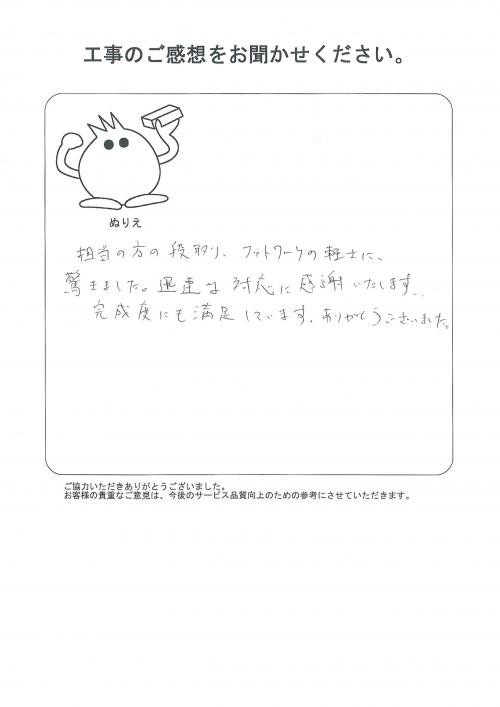 工事のご感想をお聞かせください。
ぬりえ
担当の方の段取り、フットワークの軽さに、
驚きました。迅速な対応に感謝いたします。
完成度にも満足しています。ありがとうございました。
ご協力いただきありがとうございました。
お客様の貴重なご意見は、今後のサービス品質向上のための参考にさせていただきます。